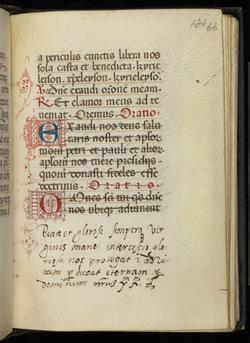 66
a periculis cunctis libera nos
sola casta et benedicta. kyrie
leyson. xpeleyson. kyrieleyso.
Dne exaudi oronē meam
R. Et clamor meus ad te
veniat. Oremus. Oratio
Exaudi nos deus salu
taris noster et aplor
tuorū petri et pauli et alior
aplorū nos tuere presidiis
quorū donasti fideles esse
doctrinis. Oratio.
Omnes sci tui qs dne
nos ubiqȝ adiuvent
Beate et gloriose semperqȝ vir
ginis marie intercessio glo
riosa nos protegat et ad vi
tam perducat eternam